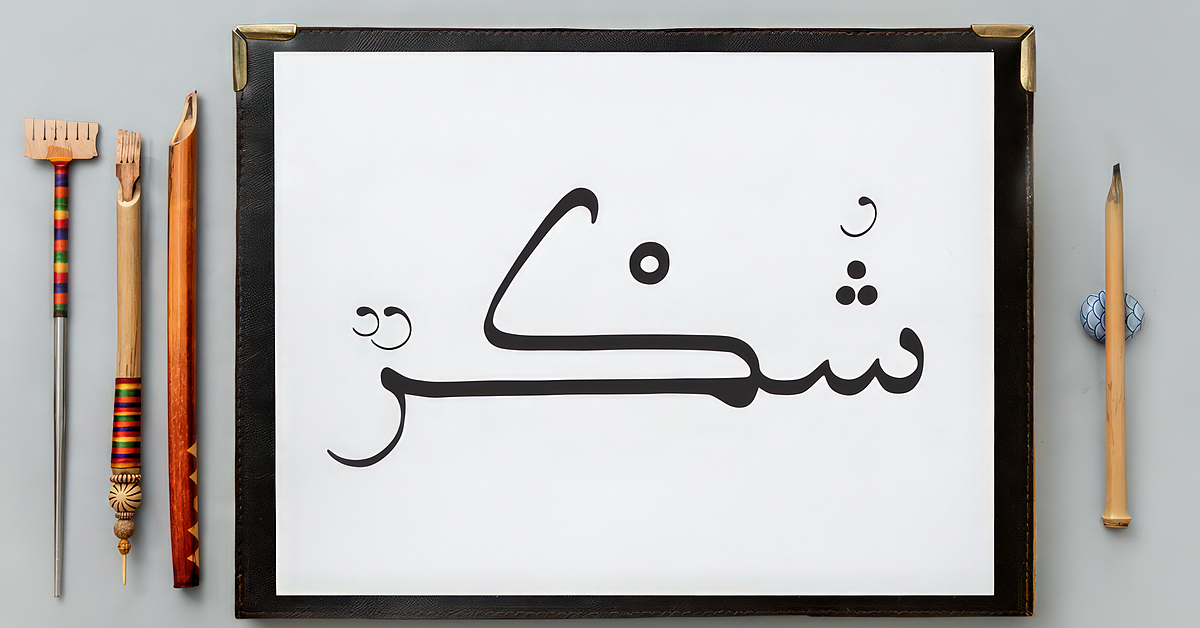 شُكْرٌ